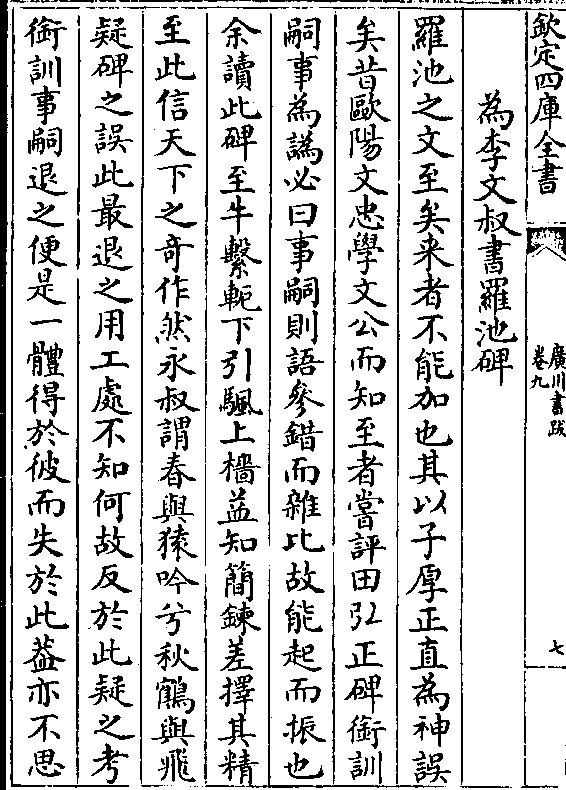 欽定四庫全書
廣川書跋
卷九
七
為李文叔書羅池碑
羅池之文至矣来者不能加也其以子厚正直為神誤
矣昔歐陽文忠學文公而知至者嘗評田𢎞正碑銜訓
嗣事為譌必曰事嗣則語參錯而雜比故能起而振也
余讀此碑至牛繫軛下引颿上檣益知簡鍊差擇其精
至此信天下之竒作然永叔謂春與猿吟兮秋鶴與飛
疑碑之誤此最退之用工處不知何故反於此疑之考
銜訓事嗣退之便是一體得於彼而失於此葢亦不思